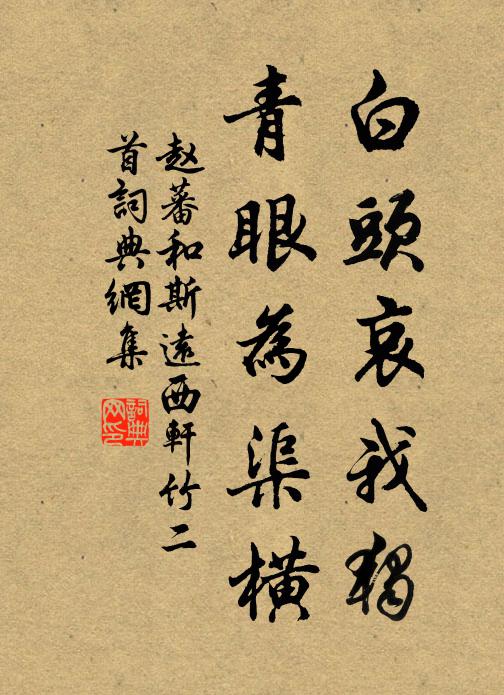 白頭哀我獨
青眼為渠橫
赵蕃和斯遠西軒竹二
首詞典網集
詞典
网印